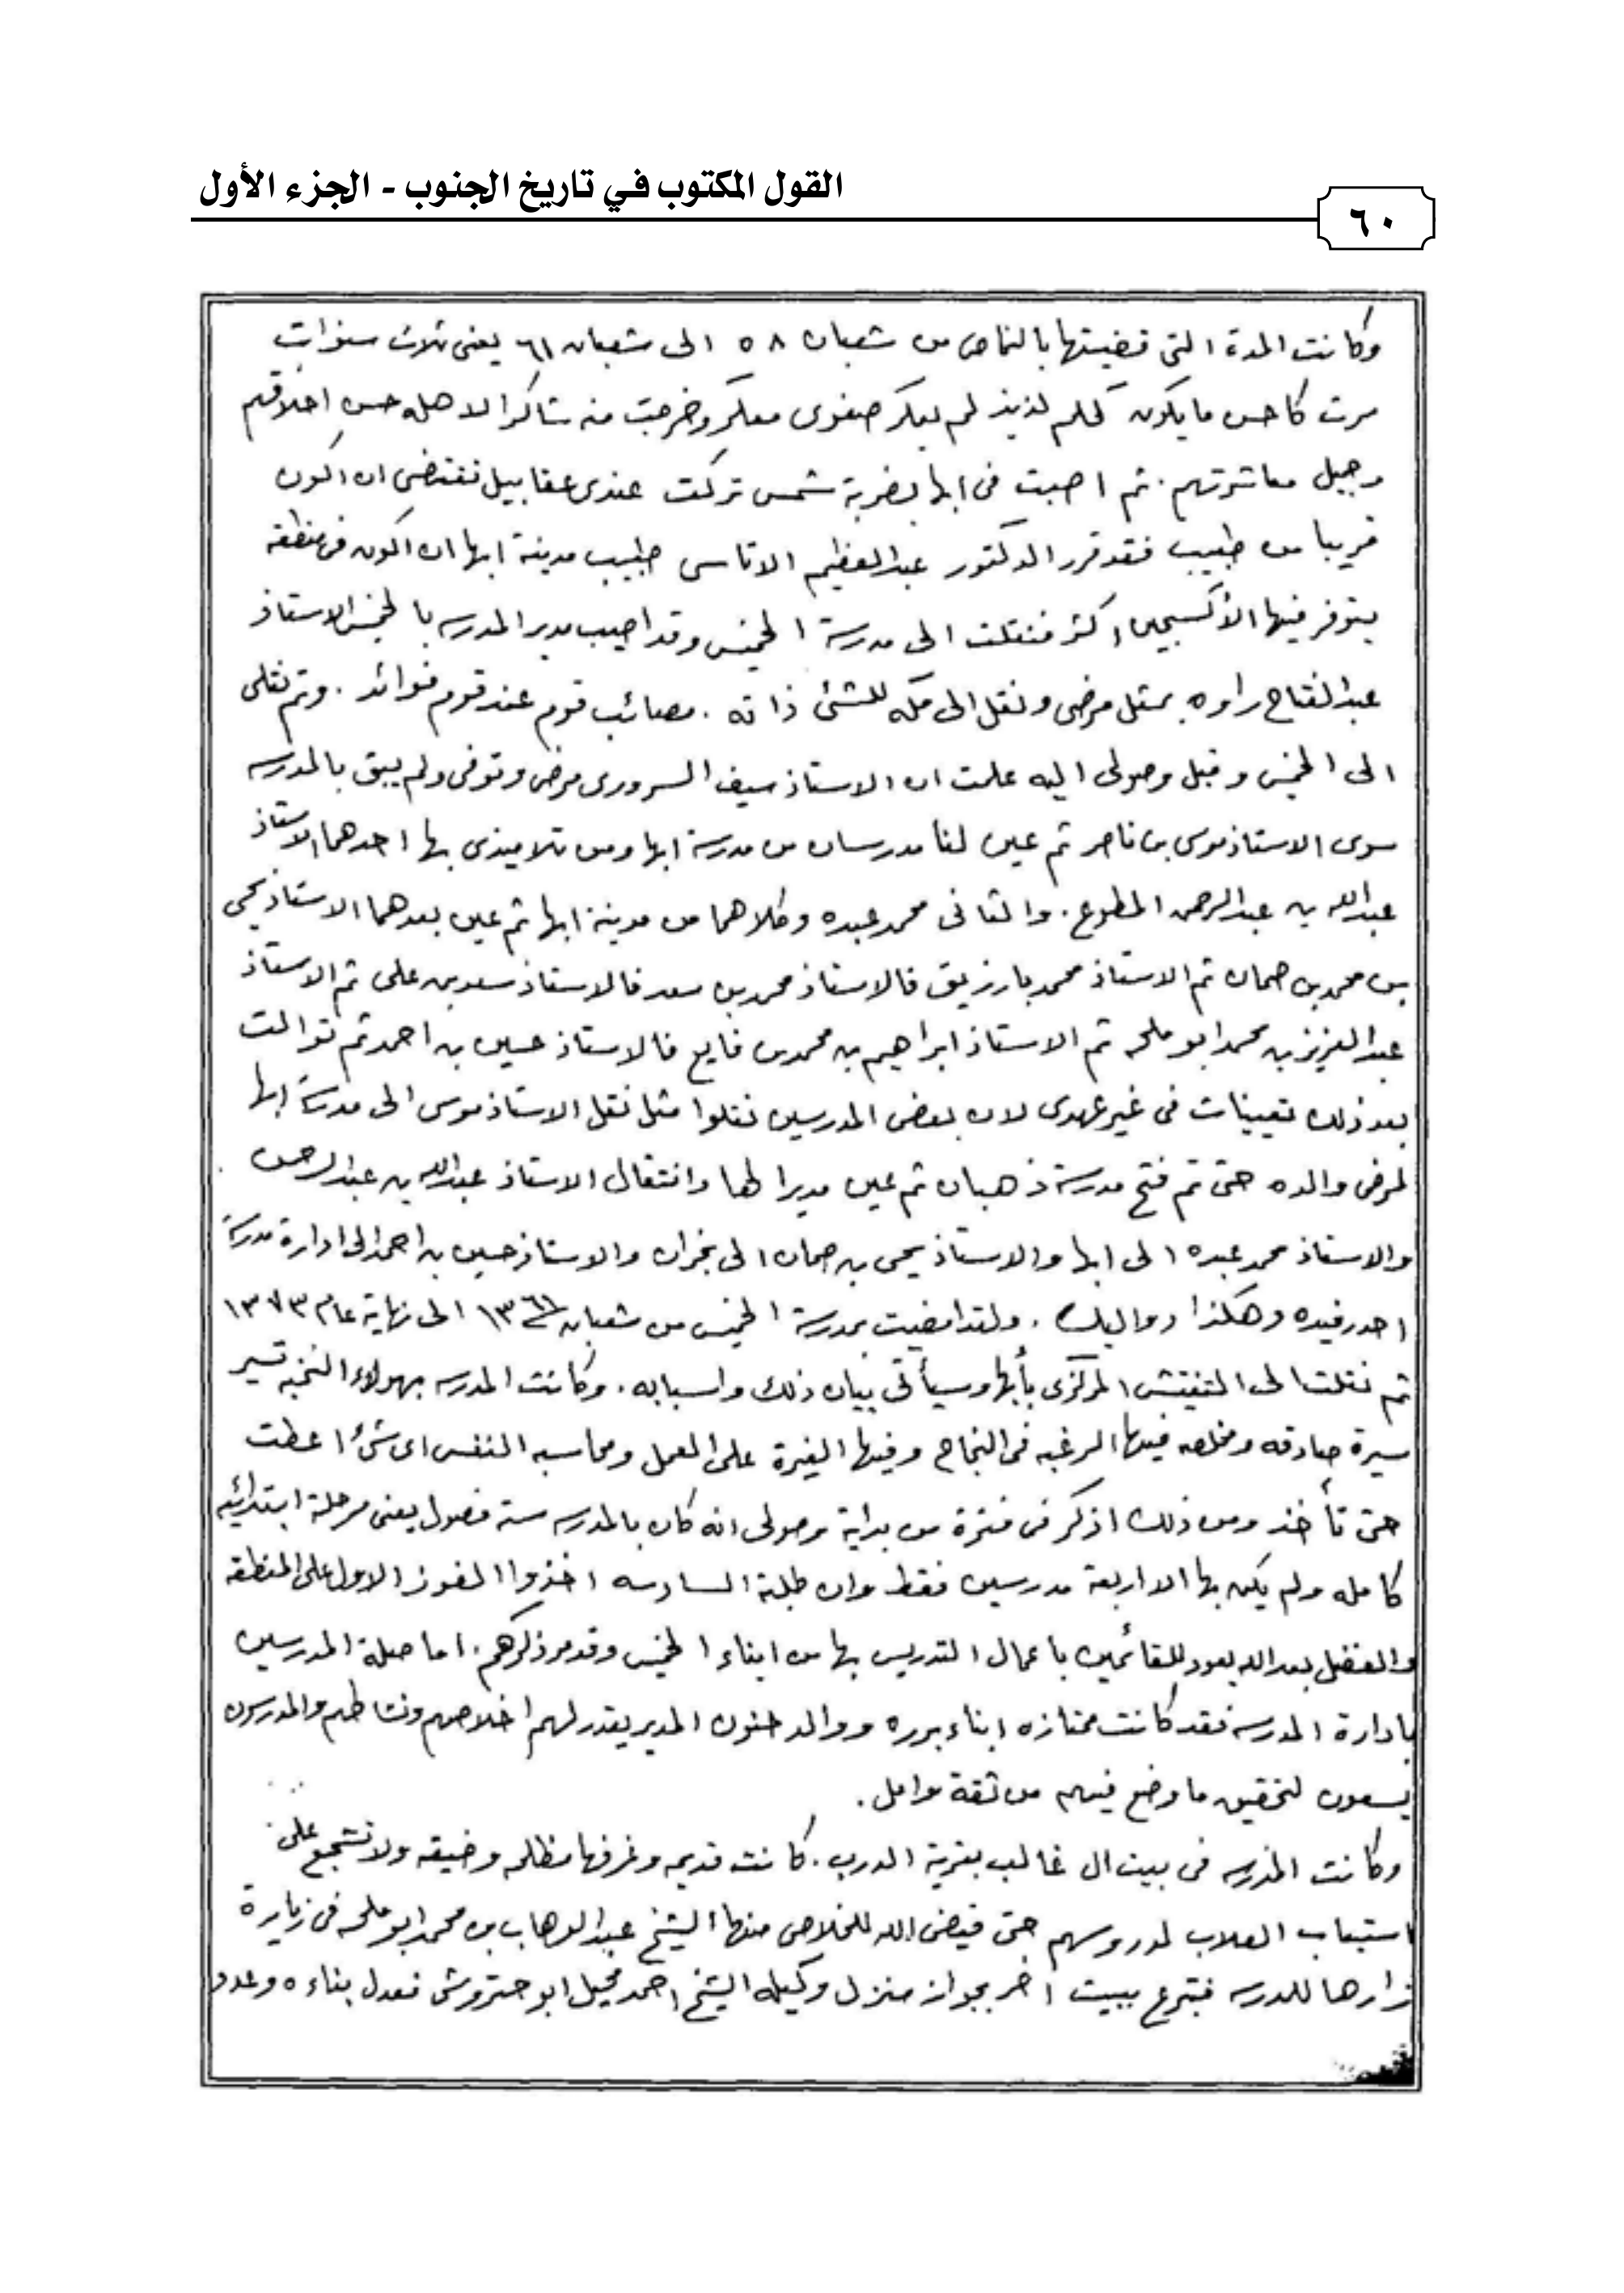 القول المكتوب في تاريخ الجنوب - الجزء الأول
٦٠
وكانت المدة التى قضيتها بالنماص من شعبان ٥٨ الى شعبان ٦١ يعنى ثلاث سنوات
مرت كاحسن ما يكون كحلم لذيذ لم يعكر صفوى معكر وخرجت منه شاكرا لاهله حسن اخلاقهم
وجميل معاشرتهم . ثم اصبت فى ابها بضربة شمس تركت عندى عقابيل تقتضى ان اكون
قريبا من طبيب فقد قرر الدكتور عبدالعظيم الاتاسى طبيب مدينة ابها ان اكون فى منطقه
يتوفر فيها الأكسجين اكثر فنقلت الى مدرسة الخميس وقد اصيب مدير المدرسه بالخميس الاستاذ
عبدالفتاح راوه بمثل مرضى ونقل الى مكه للشئ ذاته . مصائب قوم عند قوم فوائد . وتم نقلى
الى الخميس وقبل وصولى اليه علمت ان الاستاذ سيف السرورى مرض وتوفى ولم يبق بالمدرسه
سوى الاستاذ موسى بن ناصر ثم عين لنا مدرسان من مدرسة ابها ومن تلاميذى بها احدهما الاستاذ
عبدالله بن عبدالرحمن المطوع . والثانى محمد عبده وكلاهما من مدينة ابها ثم عين بعدهما الاستاذ يحى
بن محمد بن حمان ثم الاستاذ محمد بارزيق فالاستاذ محمد بن سعد فالاستاذ سعد بن على ثم الاستاذ
عبدالعزيز بن محمد ابو ملحه ثم الاستاذ ابراهيم بن محمد بن فايع فالاستاذ حسين بن احمد ثم توالت
بعد ذلك تعيينات فى غير عهدى لان بعض المدرسين نقلوا مثل نقل الاستاذ موسى الى مدرسة ابها
لمرض والده حتى تم فتح مدرسة ذهبان ثم عين مديرا لها وانتقال الاستاذ عبدالله بن عبدالرحمن
والاستاذ محمد عبده الى ابها والاستاذ يحى بن حمان الى نجران والاستاذ حسين بن احمد الى ادارة مدرسة
احد رفيده وهكذا دواليك . ولقد امضيت بمدرسة الخميس من شعبان ١٣٦١ الى نهاية عام ١٣٧٣
ثم نقلت الى التفتيش المركزى بأبها وسيأتى بيان ذلك واسبابه . وكانت المدرسه بهولاء النخبه تسير
سيرة صادقه ومخلصه فيها الرغبه فى النجاح وفيها الغيرة على العمل ومحاسبه النفس اى شئ اعطت
حتى تأخذ ومن ذلك اذكر فى فترة من بداية وصولى انه كان بالمدرسه سته فصول يعنى مرحلة ابتدائيه
كامله ولم يكن بها الا اربعة مدرسين فقط وان طلبة السادسه اخذوا الفوز الاول على المنطقه
والفضل بعد الله يعود للقائمين باعمال التدريس بها من ابناء الخميس وقد مر ذكرهم . اما صلة المدرسين
بادارة المدرسه فقد كانت ممتازه ابناء برره ووالد حنون المدير يقدر لهم اخلاصهم ونشاطهم والمدرسون
يسعون لتحقيق ما وضع فيهم من ثقة وامل .
وكانت المدرسه فى بيت ال غالب بقرية الدرب . كانت قديمه وغرفها مظلمه وضيقه ولا تشجع على
استيعاب الطلاب لدروسهم حتى قيض الله للخلاص منها الشيخ عبدالوهاب بن محمد ابو ملحه فى زيارة
زارها للمدرسه فتبرع ببيت اخر بجوار منزل وكيله الشيخ احمد محيل ابو حتروش فعدل بناءه وعدد